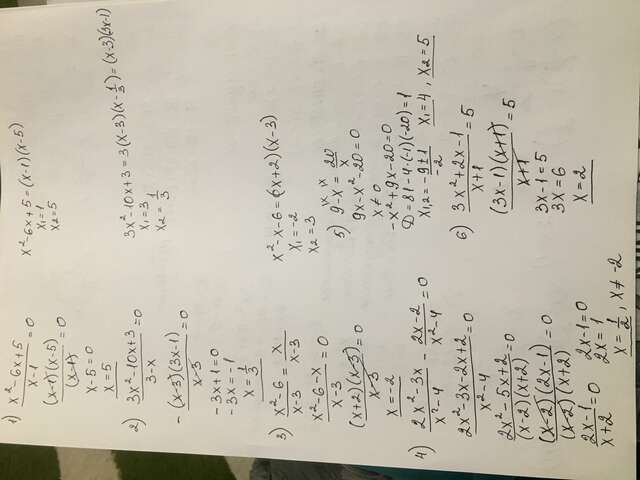 1) x²-6x+5/x-1=0
(x-1)(x-5)/(x-1)=0
x-5=0
x=5
x²-6x+5=(x-1)(x-5)
x₁=1
x₂=5
2) 3x²-10x+3/3-x=0
-(x-3)(3x-1)/x-3=0
-3x+1=0
-3x=-1
x=1/3
3x²-10x+3=3(x-3)(x-1/3)=(x-3)(3x-1)
x₁=3
x₂=1/3
3) x²-6/x-3=x/x-3
x²-6-x/x-3=0
(x+2)(x-3)/x-3=0
x=-2
x²-x-6=(x+2)(x-3)
x₁=-2
x₂=3
4) 2x²-3x/x²-4-2x-2/x²-4=0
2x²-3x-2x+2/x²-4=0
2x²-5x+2/(x-2)(x+2)=0
(x-2)(2x-1)/(x-2)(x+2)=0
2x-1/x+2=0
2x-1=0
2x=1
x=1/2, x≠-2
5) 9-x=20/x
9x-x²-20=0
x≠0
-x²+9x-20=0
D=81-4·(-1)(-20)=1
x₁,₂=-9±1/-2
x₁=4, x₂=5
6) 3x²+2x-1/x+1=5
(3x-1)(x+1)/x+1=5
3x-1=5
3x=6
x=2